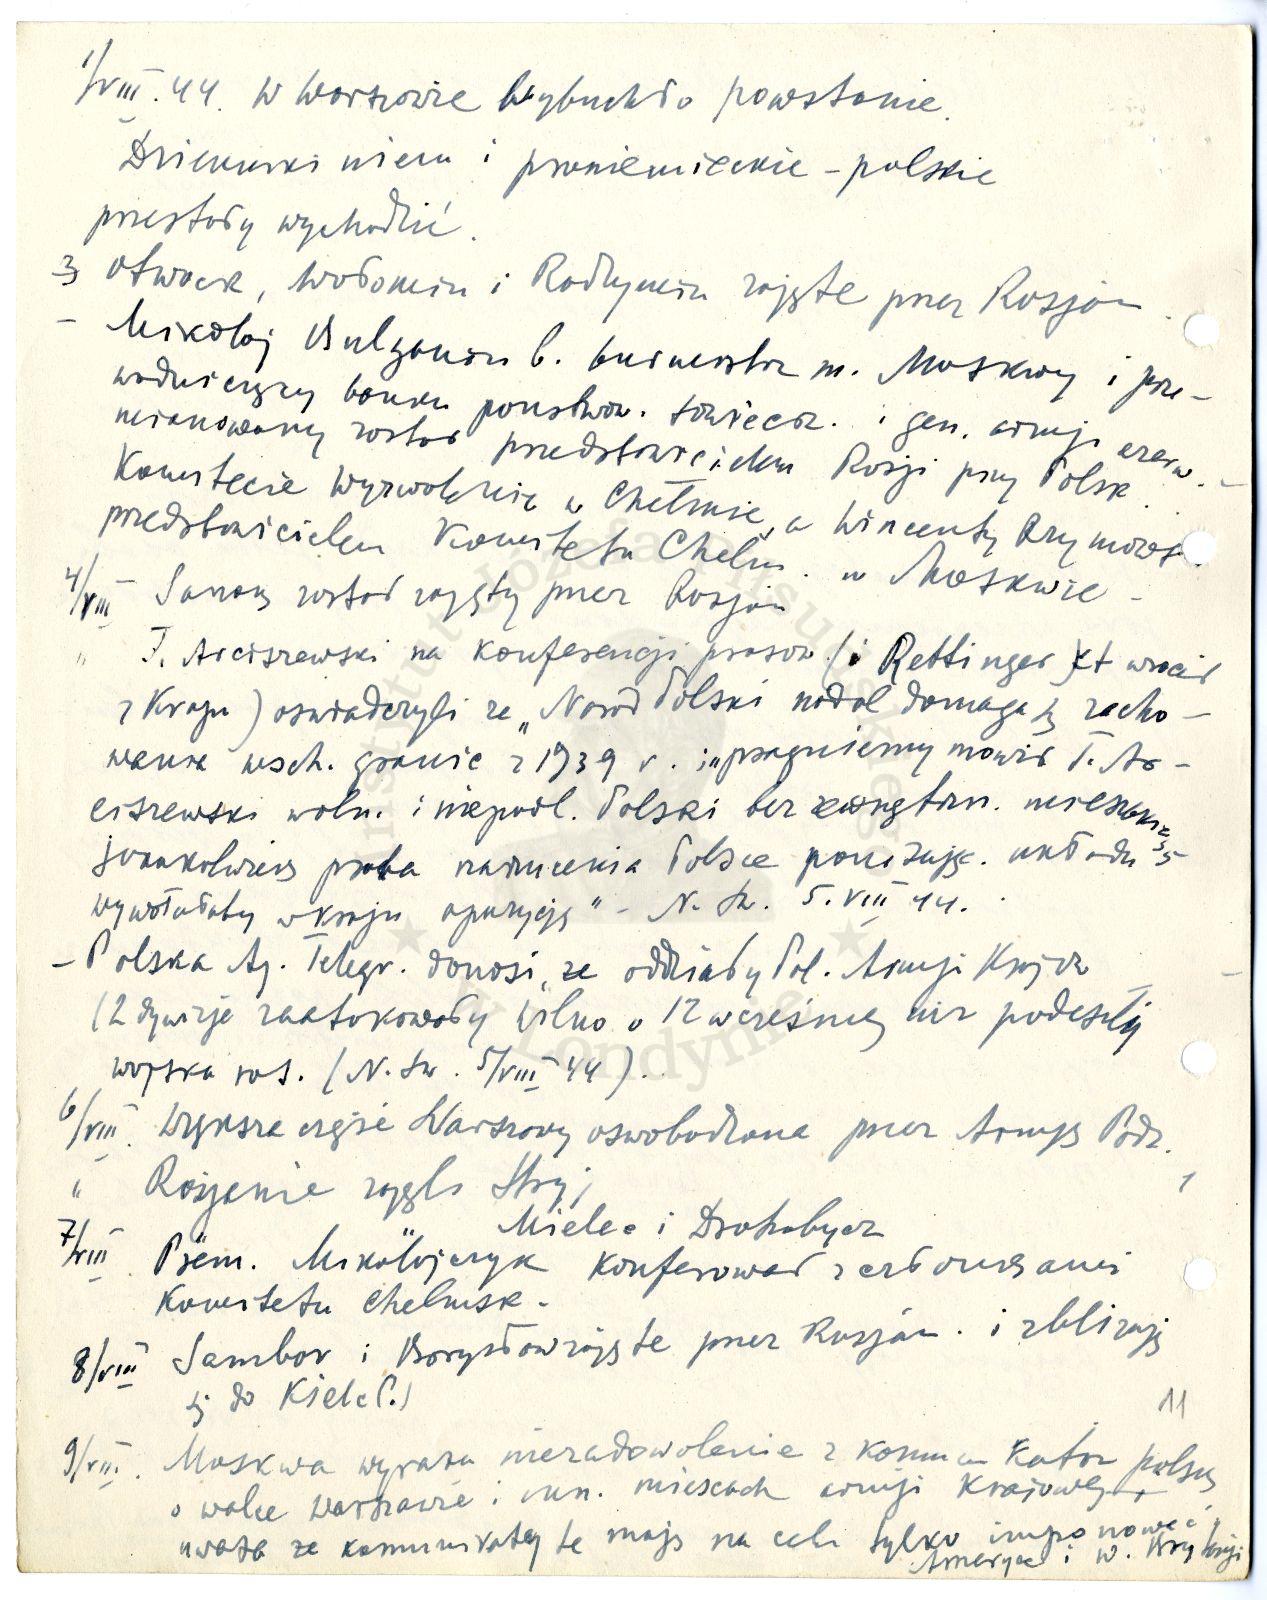 1/VIII.44. W Warszawie wybuchło powstanie.
Dzienniki niem i proniemieckie - polskie
przestały wychodzić.
3 Otwock, Wołomin i Radzymin zajęte przez Rosjan.
- Mikołaj Bulganin b. burmistrz m. Moskwy i prze-
wodniczący banku państwow. sowieck. i gen. armji czerw. -
mianowany został przedstawicielem Rosji przy Polsk.
Komitecie Wyzwolenia w Chełmie, a Wincenty Rzymows.
przedstawicielem Komitetu Chełm. w Moskwie -
4/VIII Sanok został zajęty przez Rosjan
" T. Arciszewski na konferencji prasow (i Rettinger kt wrócił
z Kraju) oświadczyli że „Naród Polski nadal domaga się zacho-
wania wsch. granic z 1939 r. i „pragniemy mówił T. Ar-
ciszewski woln. i niepodl. Polski bez
jakakolwiek próba narzucenia Polsce układu
wywołałaby w kraju opozycję" - N. Św. 5.VIII 44.
- Polska Aj. Telegr. donosi, że oddziały Pol. Armji Krajow
(2 dywizje zaatakowały Wilno o 12 wcześniej niż podeszły
wojska ros. (N. Św. 5/VIII 44).
6/VIII. Większa część Warszawy oswobodzona przez Armję Podz.
" Rosjanie zajęli Stryj
Mielec i Drohobycz
7/VIII Prem. Mikołajczyk konferował z członkami
Komitetu Chełmsk -
8/VIII Sambor i Borysław zajęte przez Rosjan. i zbliżają
się do Kielc(.)
11
9/VIII. Moskwa wyraża niezadowolenie z komunikatów polskich
o walce Warszawie i inn. miejscach armji Krajowej
uważa że komunikaty te mają na celu tylko imponować
Ameryce i W. Brytanji